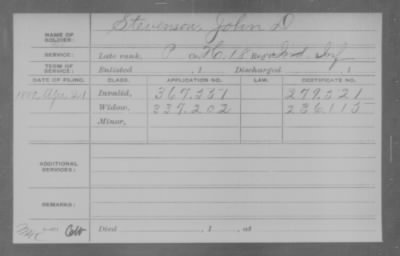 NAME OF SOLDIER: Stevenson, John D
SERVICE: Late rank, P Co. H, 18 Reg't Ind. Inf
TERM OF SERVICE: Enlisted , 1 Discharged , 1
DATE OF FILING. CLASS. APPLICATION NO. LAW. CERTIFICATE NO.
Apr. 21 Invalid, 367.551 279.521
Widow, 337.202 236.115
Minor,
ADDITIONAL SERVICES:
REMARKS:
Died , 1 , at